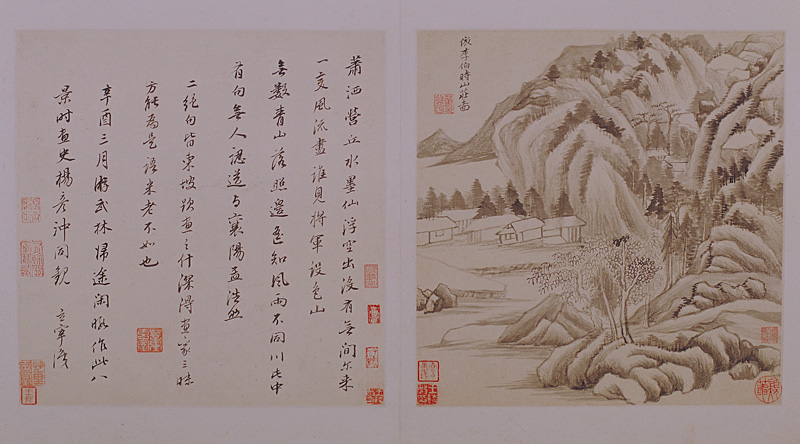 倣李伯時山莊圖
蕭洒營丘水墨仙浮空出沒有無間尔来
一变風流盡誰見將軍設色山
無數青山落照邊遙知風雨不同川此中
有句無人認送与襄陽孟浩然
二絕句皆東坡跋畫之什深得畫家三昧
方能為是語米老不如也
辛酉三月游武林歸途閑暇作此八
景时畫史楊彥冲同觀 玄宰識